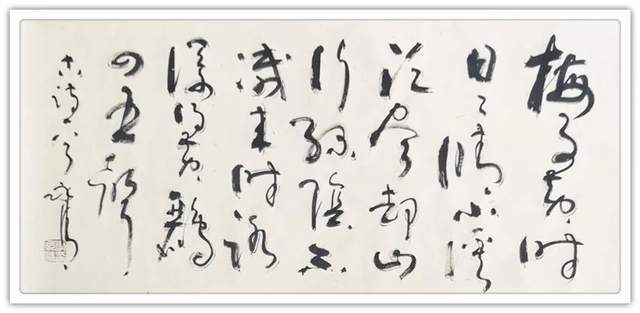 梅子黄时
日々晴小溪
泛尽却山
行绿陰不
减来时路
添得黄鸝
四五聲
古诗